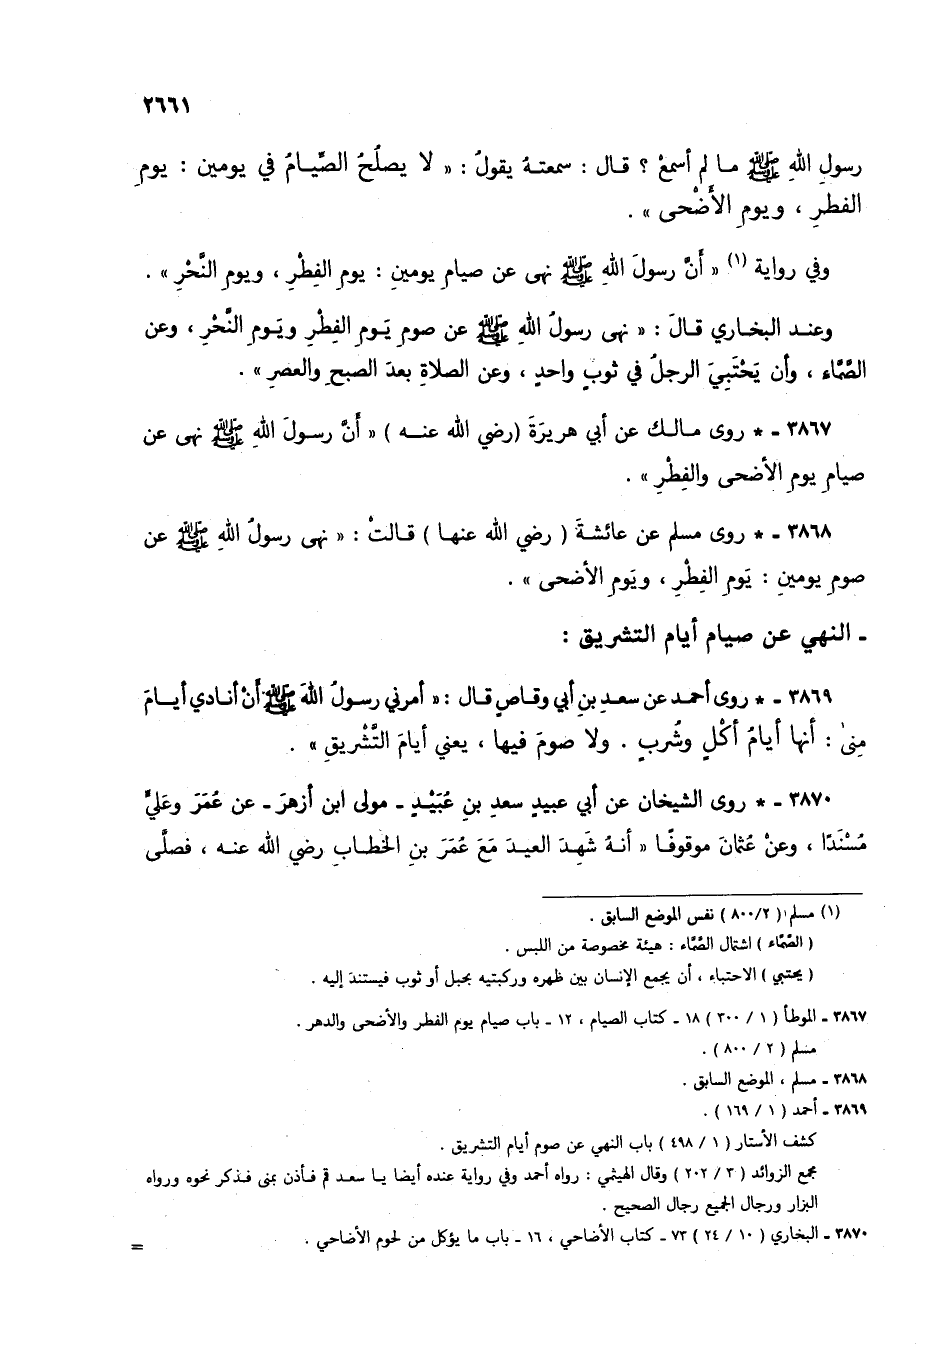 ٢٦٦١
رسولِ اللهِ ﷺ ما لم أسمعْ ؟ قال : سمعتهُ يقولُ : « لا يصلُحُ الصِّيامُ في يومين : يومِ
الفطرِ ، ويومِ الأَضْحى » .
وفي رواية (١) « أَنَّ رسولَ اللهِ ﷺ نهى عن صيامِ يومينِ : يومِ الفِطْرِ ، ويومِ النَّحْرِ » .
وعند البخاري قالَ : « نهى رسولُ اللهِ ﷺ عن صومِ يَومِ الفِطْرِ ويَومِ النَّحْرِ ، وعن
الصَّمَّاء ، وأن يَحْتَبِيَ الرجلُ في ثوبٍ واحدٍ ، وعن الصلاةِ بعدَ الصبحِ والعصرِ » .
٣٨٦٧ - * روى مالك عن أبي هريرَةَ (رضي الله عنه ) « أَنَّ رسولَ اللهِ ﷺ نهى عن
صيامِ يومِ الأضحى والفِطْرِ » .
٣٨٦٨ - * روى مسلم عن عائشةَ ( رضي الله عنها ) قالتْ : « نهى رسولُ اللهِ ﷺ عن
صومِ يومينِ : يَومِ الفِطْرِ ، ويَومِ الأضحى » .
ـ النهي عن صيام أيام التشريق :
٣٨٦٩ - * روى أحمد عن سعدِ بنِ أبي وقاصٍ قال : « أمرني رسولُ اللهَ ﷺ أَنْ أنادي أيامَ
مِنىٰ : أنها أيامُ أكْلٍ وشُربٍ . ولا صومَ فيها ، يعني أيامَ التَّشْريقِ » .
٣٨٧٠ - * روى الشيخان عن أبي عبيدٍ سعدِ بنِ عُبَيْدٍ - مولى ابن أزهرَ - عن عُمَرَ وعَليٍّ
مُسْنَدًا ، وعنْ عُثمانَ موقوفًا « أنهُ شَهِدَ العيدَ مَعَ عُمَرَ بنِ الخطابِ رضي الله عنه ، فصلَّى
(١) مسلم ( ٢/ ٨٠٠ ) نفس الموضع السابق .
( الصَّمَّاء ) اشتمال الصَّمَّاء : هيئة مخصوصة من اللبس .
( يحتبي ) الاحتباء ، أن يجمع الإنسان بين ظهره وركبتيه بحبل أو ثوب فيستندَ إليه .
٣٨٦٧ - الموطأ ( ١ / ٣٠٠ ) ١٨ - كتاب الصيام ، ١٢ - باب صيام يوم الفطر والأضحى والدهر .
مسلم ( ٢ / ٨٠٠ ) .
٣٨٦٨ - مسلم ، الموضع السابق .
٣٨٦٩ - أحمد ( ١ / ١٦٩ ) .
كشف الأستار ( ١ / ٤٩٨ ) باب النهي عن صوم أيام التشريق .
مجمع الزوائد ( ٣ / ٢٠٢ ) وقال الهيثمي : رواه أحمد وفي رواية عنده أيضا يا سعد قم فأذن بمنى فذكر نحوه ورواه
البزار ورجال الجميع رجال الصحيح .
٣٨٧٠ - البخاري ( ١٠ / ٢٤ ) ٧٣ - كتاب الأضاحي ، ١٦ - باب ما يؤكل من لحوم الأضاحي .
=